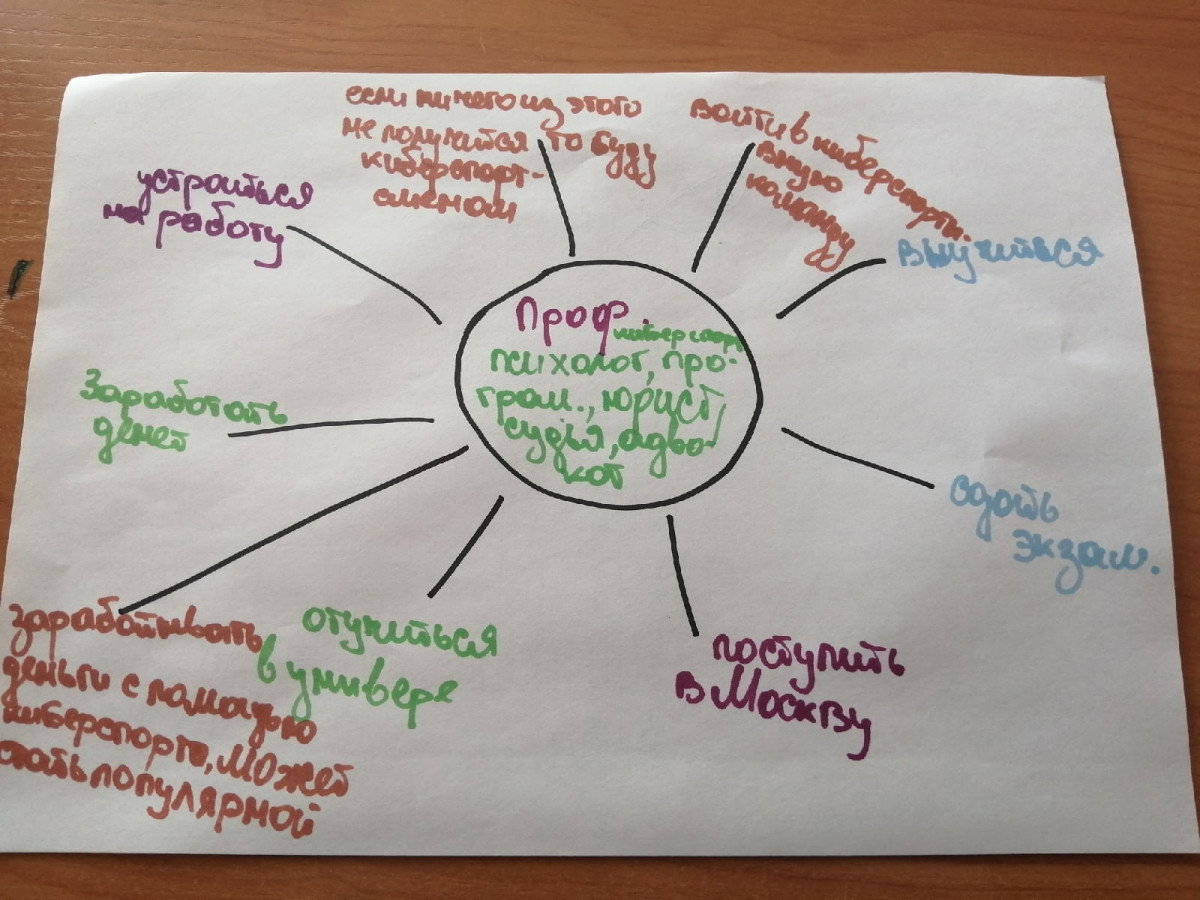 если ничего из этого
не получится то буду
киберспорт-
сменом
войти в киберспорти.
вную
команду
выучиться
сдать
экзам.
поступить
в Москву
отучиться
в универе
зарабатывать
деньги с помощью
киберспорта, может
стать популярной
Заработать
денег
устроиться
на работу
Проф.
киберспорт
психолог, про-
грам., юрист,
судья, адво-
кат